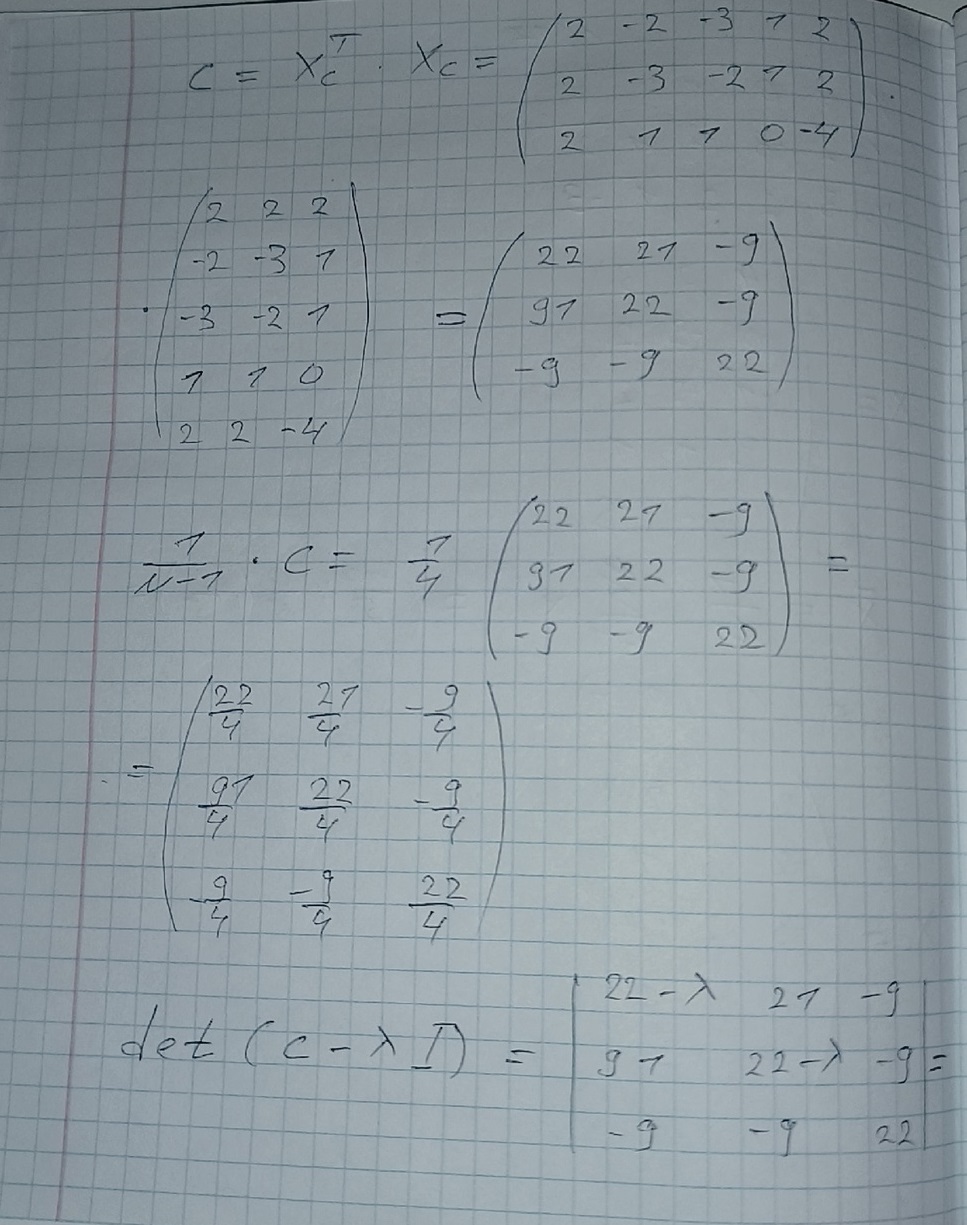 C = X_c^T · X_c = ( 2 -2 -3 1 2
2 -3 -2 1 2
2 1 1 0 -4 ) ·
( 2 2 2
-2 -3 1
· -3 -2 1
1 1 0
2 2 -4 )
= ( 22 21 -9
91 22 -9
-9 -9 22 )
1/(N-1) · C = 1/4 ( 22 21 -9
91 22 -9
-9 -9 22 ) =
= ( 22/4 21/4 -9/4
91/4 22/4 -9/4
-9/4 -9/4 22/4 )
det (C - λ I) = | 22-λ 21 -9
91 22-λ -9
-9 -9 22 | =